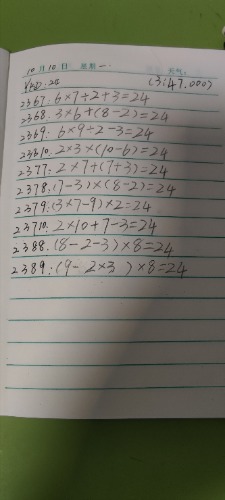 10月10日 星期一 天气:
(3:47.000)
2367: 6×7÷2+3=24
2368: 3×6+(8-2)=24
2369: 6×9÷2-3=24
23610: 2×3×(10-6)=24
2377: 2×7+(7+3)=24
2378: (7-3)×(8-2)=24
2379: (3×7-9)×2=24
23710: 2×10+7-3=24
2388: (8-2-3)×8=24
2389: (9-2×3)×8=24